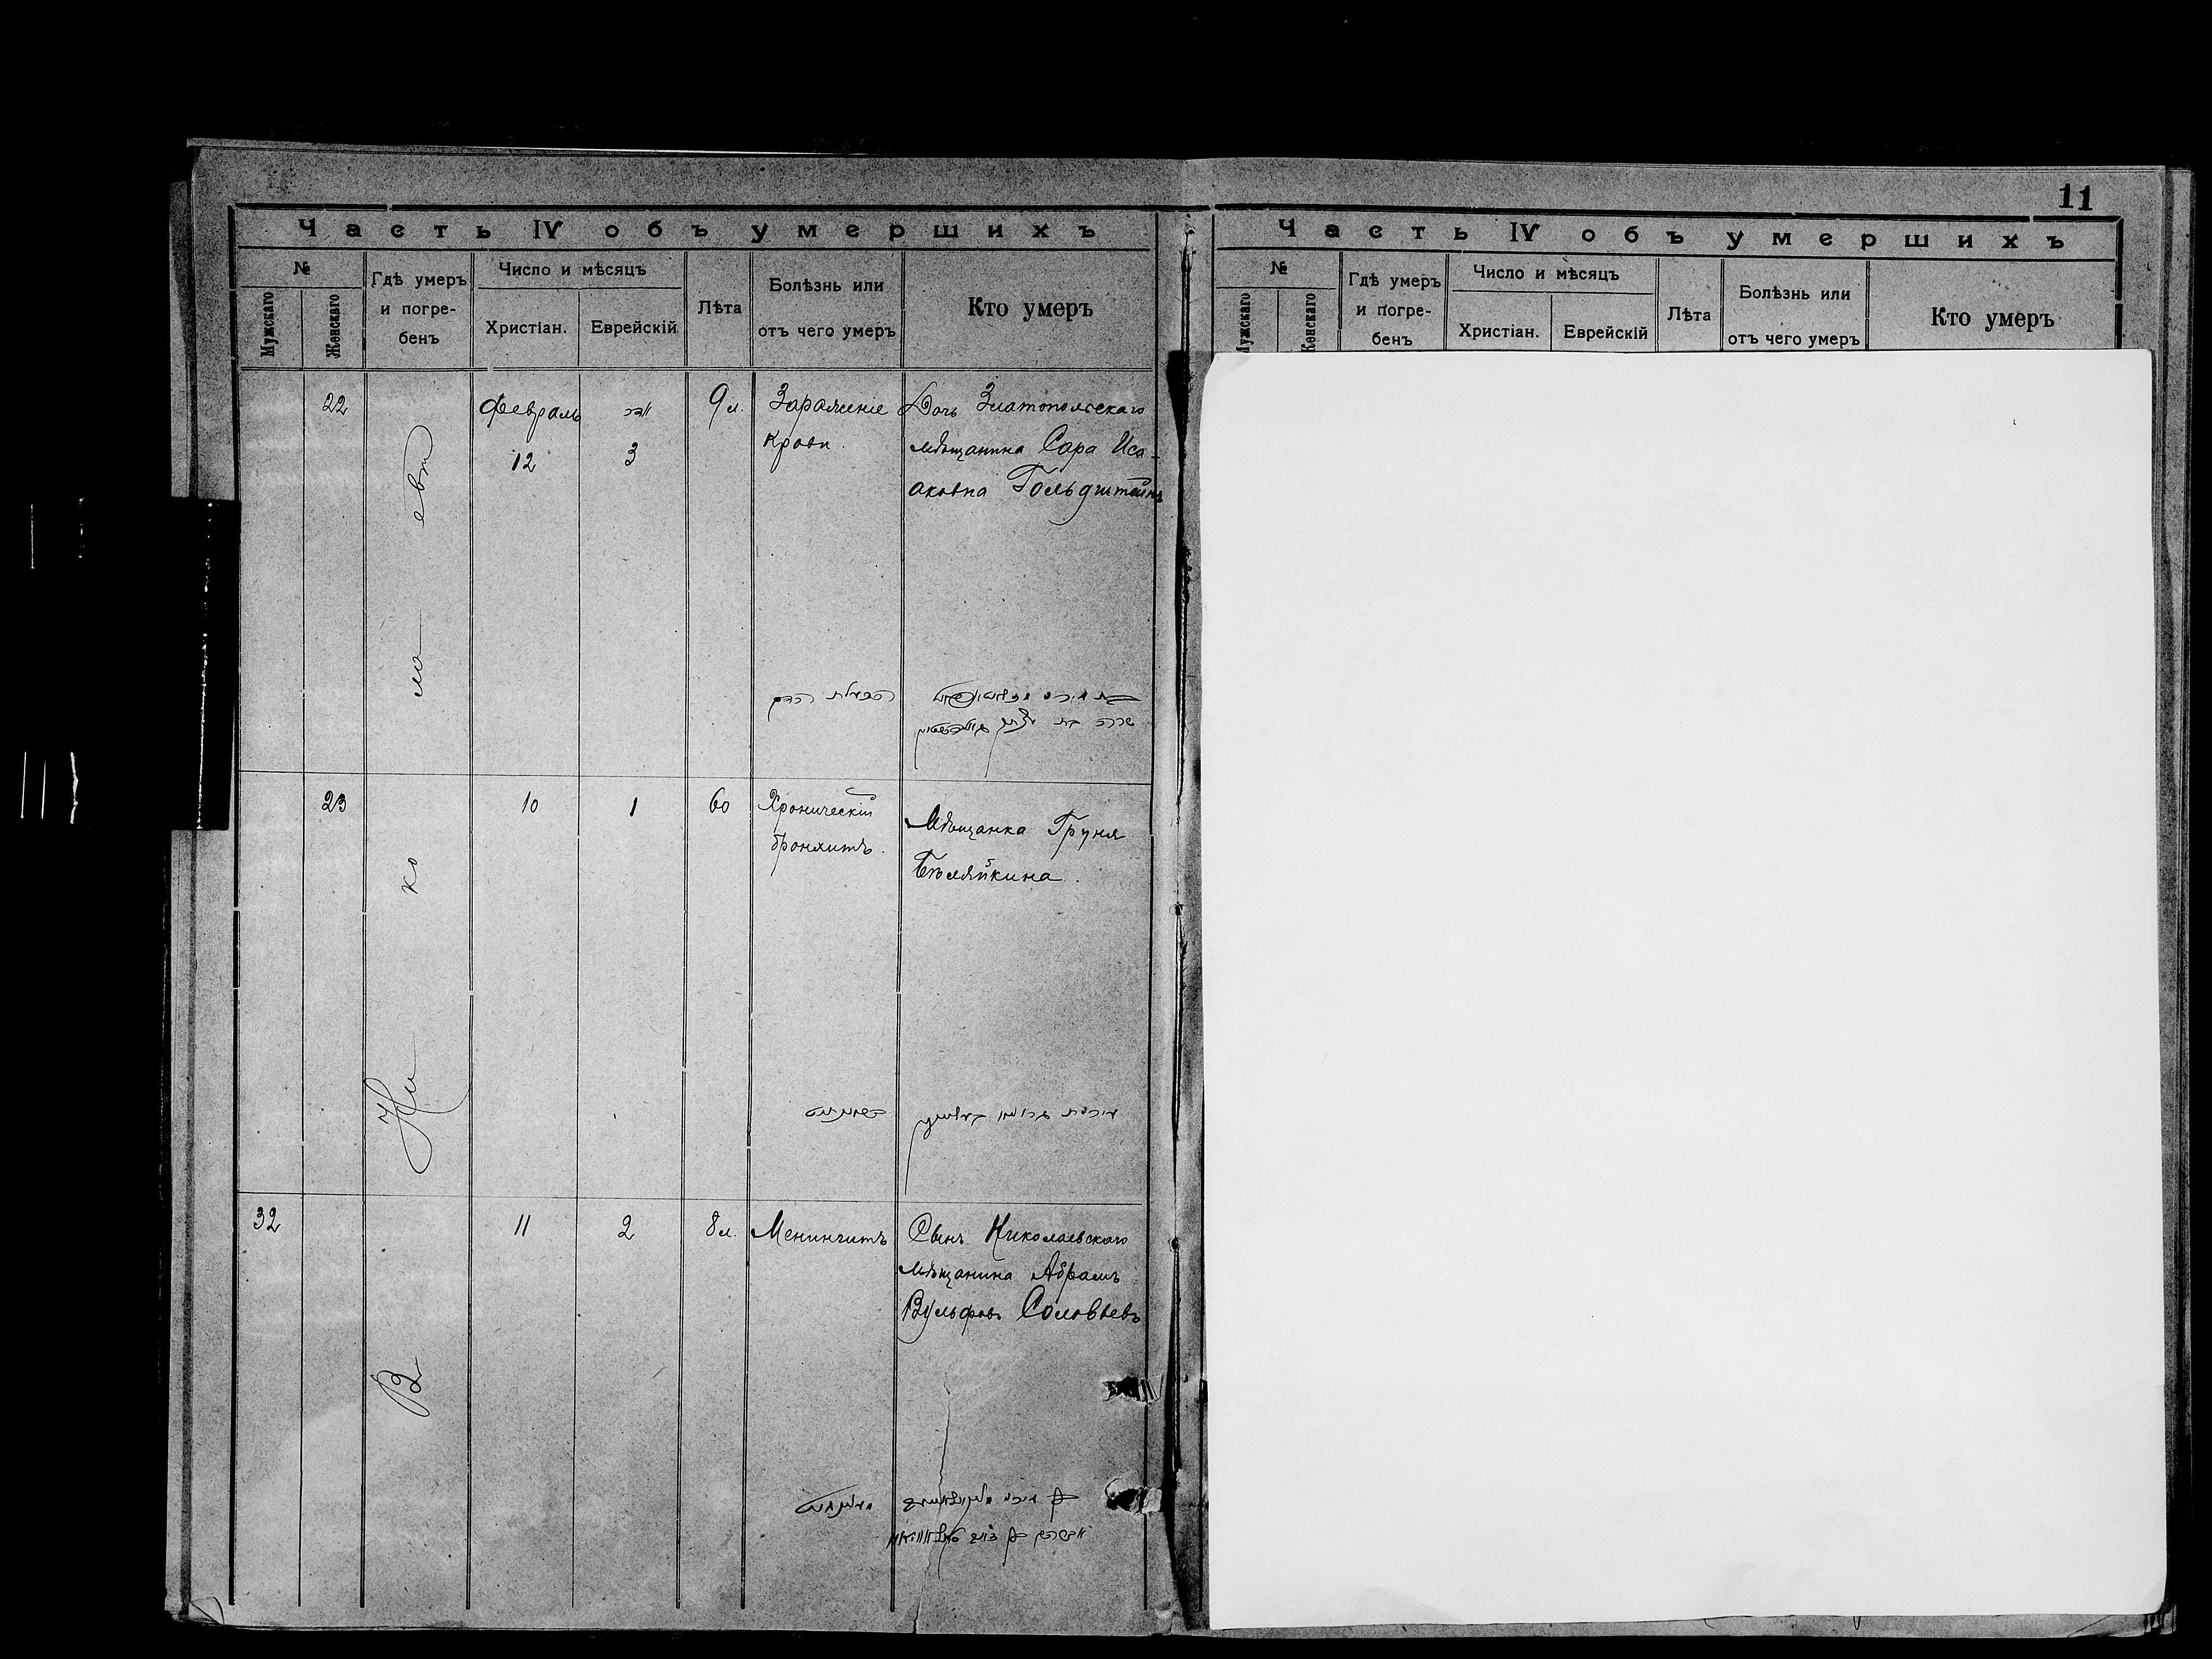 11
Часть IV объ умершихъ
№
Мужскаго
Женскаго
Гдѣ умеръ
и погре-
бенъ
Число и мѣсяцъ
Христіан.
Еврейскій
Лѣта
Болѣзнь или
отъ чего умеръ
Кто умеръ
22
Февраль
12
אדר
3
9 л.
Зараженіе
крови.
Дочь Златопольскаго
мѣщанина Сара Иса-
аковна Гольдштейнъ
שרה בת יצחק גולדשטיין
23
10
1
60
Хроническій
бронхитъ.
Мѣщанка Груня
Бѣляйкина.
32
11
2
8 л.
Менингитъ
Сынъ Николаевскаго
мѣщанина Абрамъ
Вульфовъ Соловьевъ
В Николаевѣ
Часть IV объ умершихъ
№
Мужскаго
Женскаго
Гдѣ умеръ
и погре-
бенъ
Число и мѣсяцъ
Христіан.
Еврейскій
Лѣта
Болѣзнь или
отъ чего умеръ
Кто умеръ